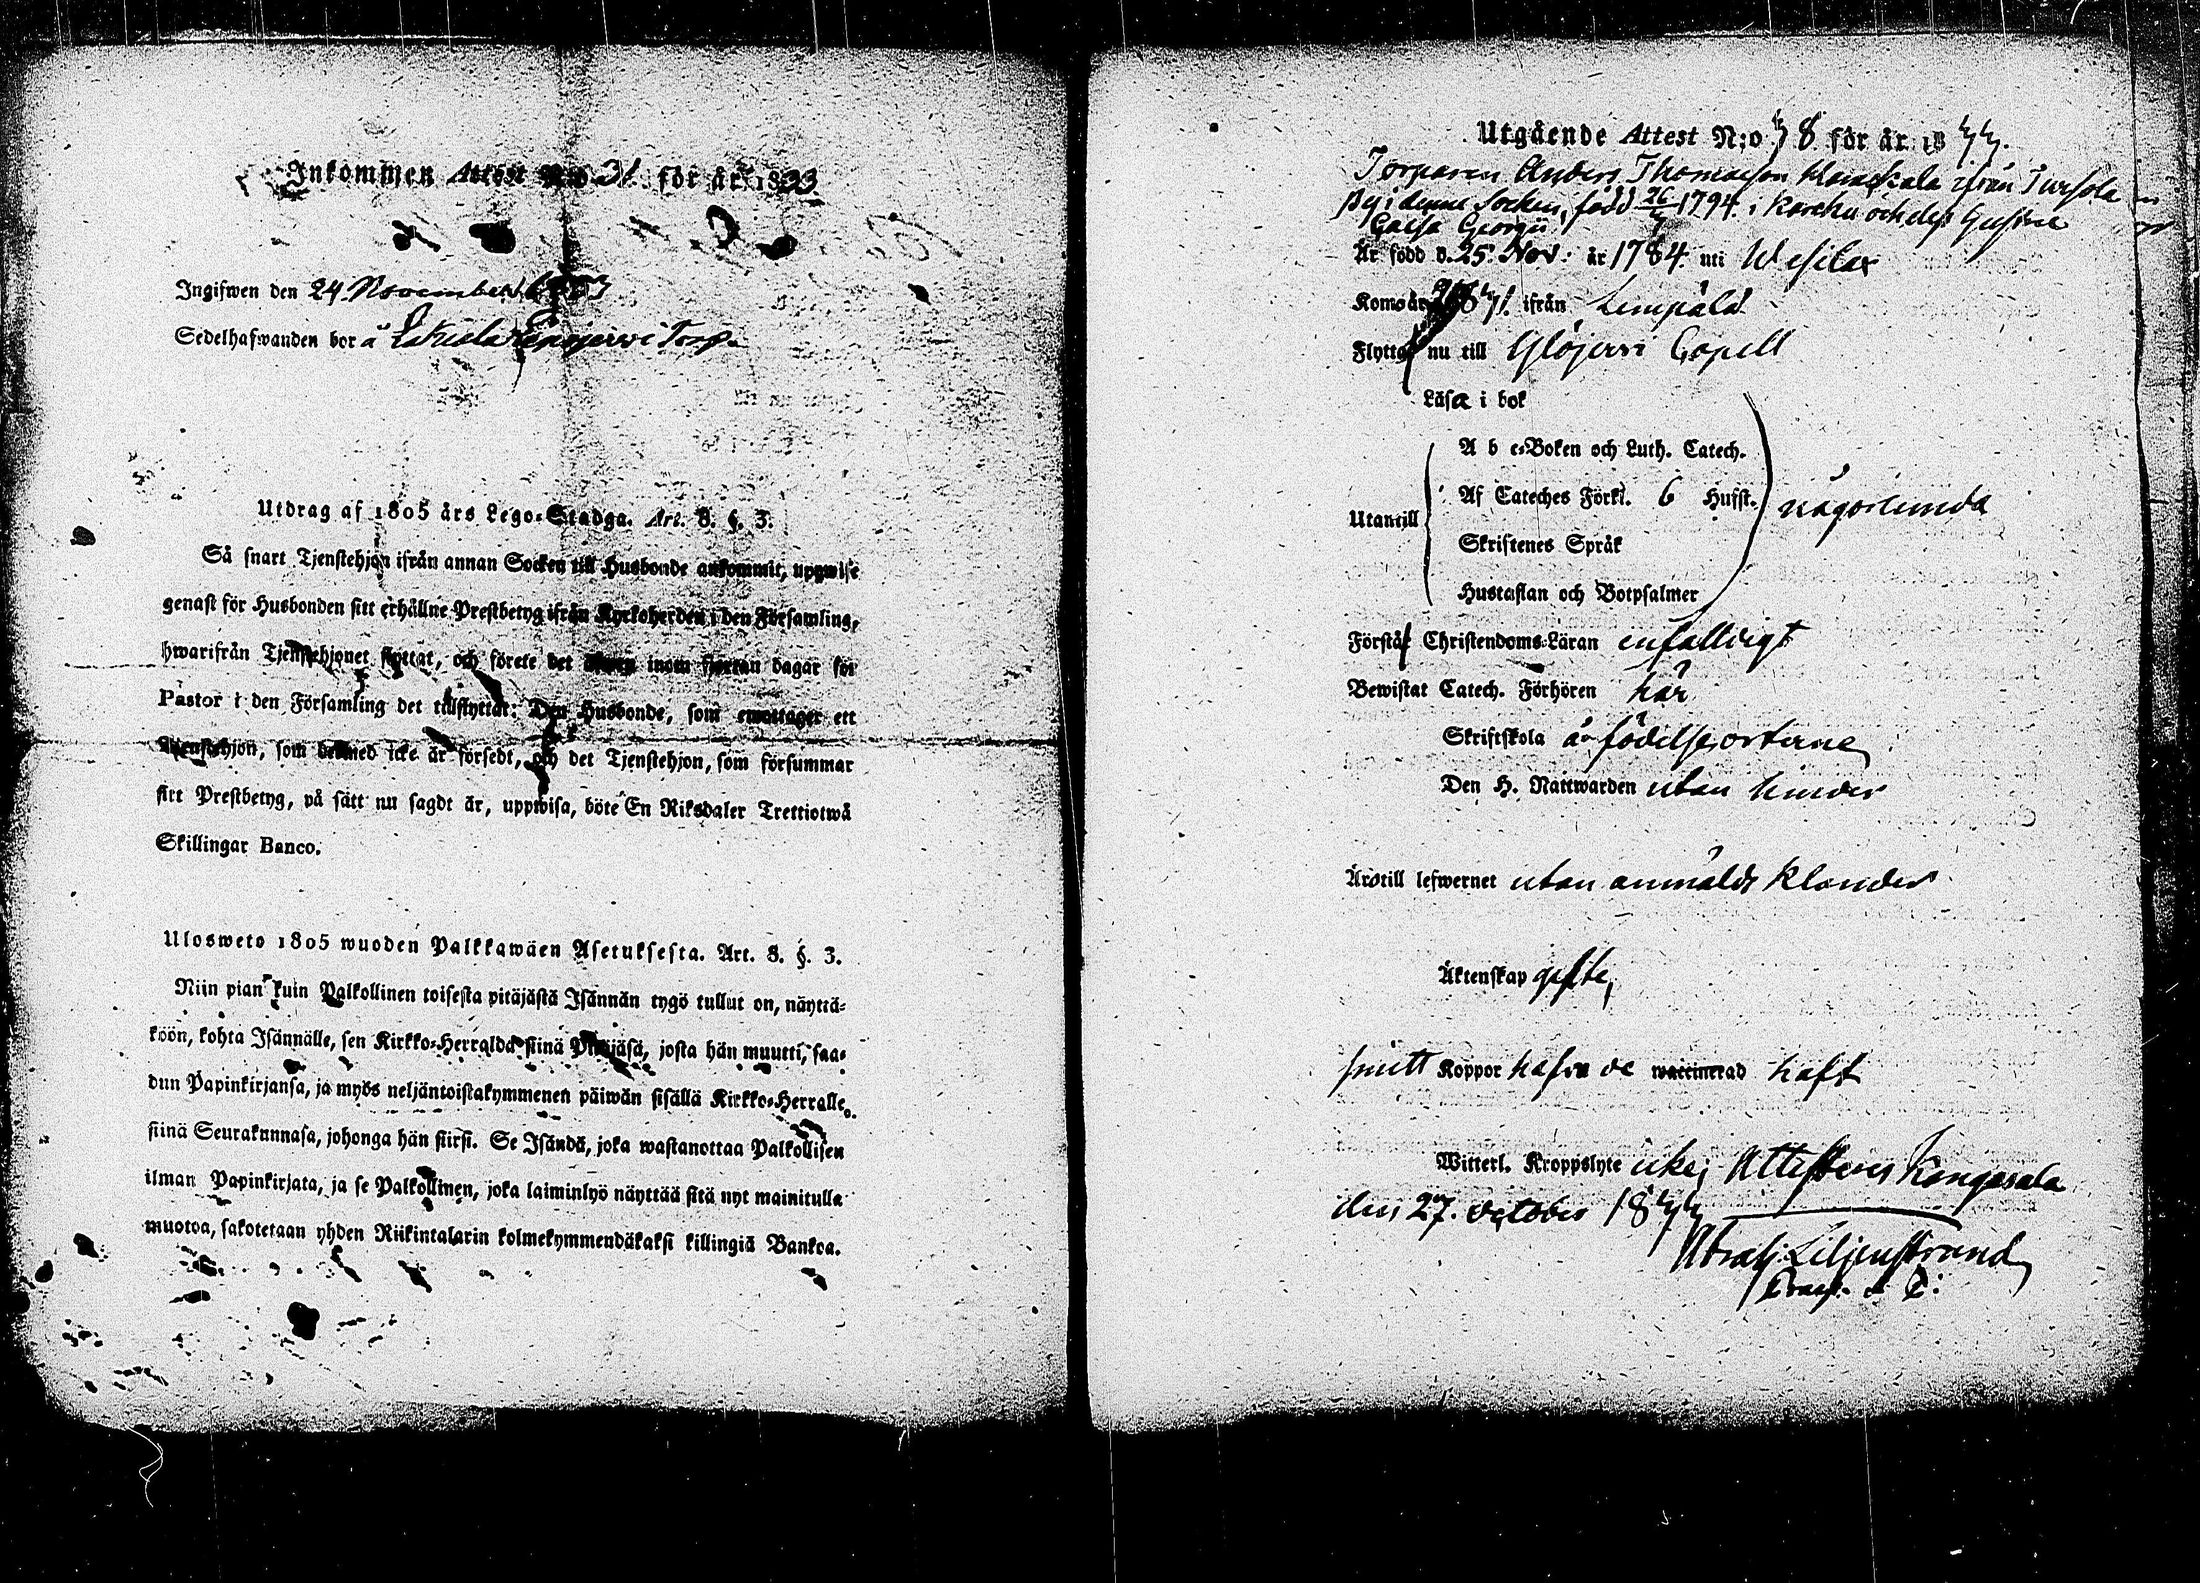 Inkommen Attest N:o 31. för år 1833
Ingifwen den 24. November 1833
Sedelhafwanden bor å Torp.
Utdrag af 1805 års Lego-Stadga. Art. 8. §. 3.
Så snart Tjenstehjon ifrån annan Socken till Husbonde ankommit, uppwise
genast för Husbonden sitt erhållne Prestbetyg ifrån Kyrkoherden i den Församling,
hwarifrån Tjenstehjonet flyttat, och förete det inom fjorton dagar för
Pastor i den Församling det tillflyttat: Den Husbonde, som emottager ett
Tjenstehjon, som dermed icke är försedt, och det Tjenstehjon, som försummar
sitt Prestbetyg, på sätt nu sagdt är, uppwisa, böte En Riksdaler Trettiotwå
Skillingar Banco.
Ulosweto 1805 wuoden Palkkawäen Asetuksesta. Art. 8. §. 3.
Niin pian kuin Palkollinen toisesta pitäjästä Isännän tygö tullut on, näyttä-
köön, kohta Isännälle, sen Kirkko-Herralda siinä Pitäjäsä, josta hän muutti, saa-
dun Papinkirjansa, ja myös neljäntoistakymmenen päiwän sisällä Kirkko-Herralle
siinä Seurakunnasa, johonga hän siirsi. Se Isändä, joka wastanottaa Palkollisen
ilman Papinkirjata, ja se Palkollinen, joka laiminlyö näyttää sitä nyt mainitulla
muotoa, sakotetaan yhden Riikintalarin kolmekymmendäkaksi killingiä Bankoa.
Utgående Attest N:o 78 för år 1877.
Torparen Anders Thomasson ifrån Tursola
By i denne Socken, född 26/ 1794. i Karcku och dess Hustru
Caisa Georgii
Är född d. 25. Nov. år 1784. uti Wesilax
Kom år ifrån Lempälä
Flytta nu till Ylöjerwi Capell
Läsa i bok
A b c-Boken och Luth. Catech.
Af Cateches Förkl. 6 Hufst. någorlunda
Utantill
Skriftenes Språk
Hustaflan och Botpsalmer
Förstå Christendoms-Läran enfalldigt
Bewistat Catech. Förhören här
Skriftskola å födelseorterne
Den H. Nattwarden utan hinder
Äro till lefwernet utan anmäldt klander
Äktenskap gifte,
Koppor hafva de haft
Witterl. Kroppslyte icke, Attesteras Kangasala
den 27. October 18
Abrah. Liljenstrand